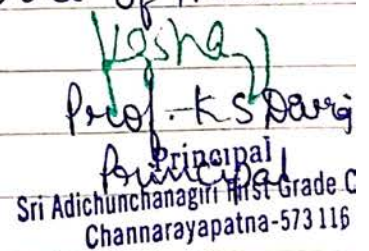 of
Prof. K S
Principal
Principal
Sri Adichunchanagiri First Grade C
Channarayapatna-573 116